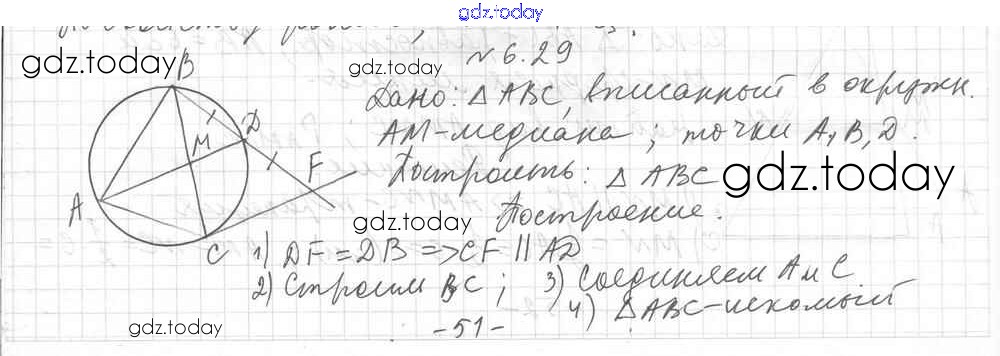 gdz.today
№ 6.29
gdz.today
gdz.today
Дано: △ABC, вписанный в окружн.
AM-медиана; точки A, B, D.
Построить: △ABC
gdz.today
Построение.
gdz.today
B
D
M
F
A
C
1) DF = DB => CF || AD
2) Строим BC; 3) Соединяем A и C
4) △ABC-искомый
gdz.today
-51-